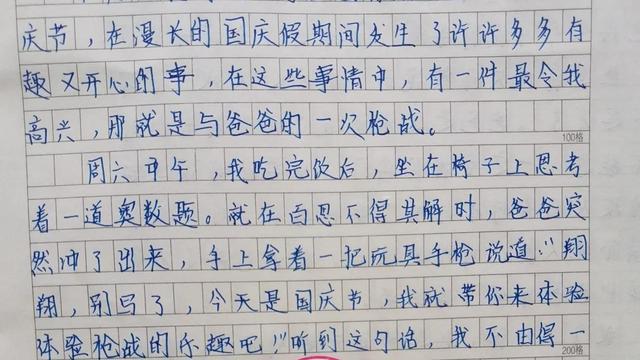 庆节，在漫长的国庆假期间发生了许许多多有
趣又开心的事，在这些事情中，有一件最令我
高兴，那就是与爸爸的一次枪战。
100格
周六中午，我吃完饭后，坐在椅子上思考
着一道奥数题。就在百思不得其解时，爸爸突
然冲了出来，手上拿着一把玩具手枪说道：“翔
翔，别写了，今天是国庆节，我就带你来体验
体验枪战的乐趣吧！”听到这句话，我不由得一
200格